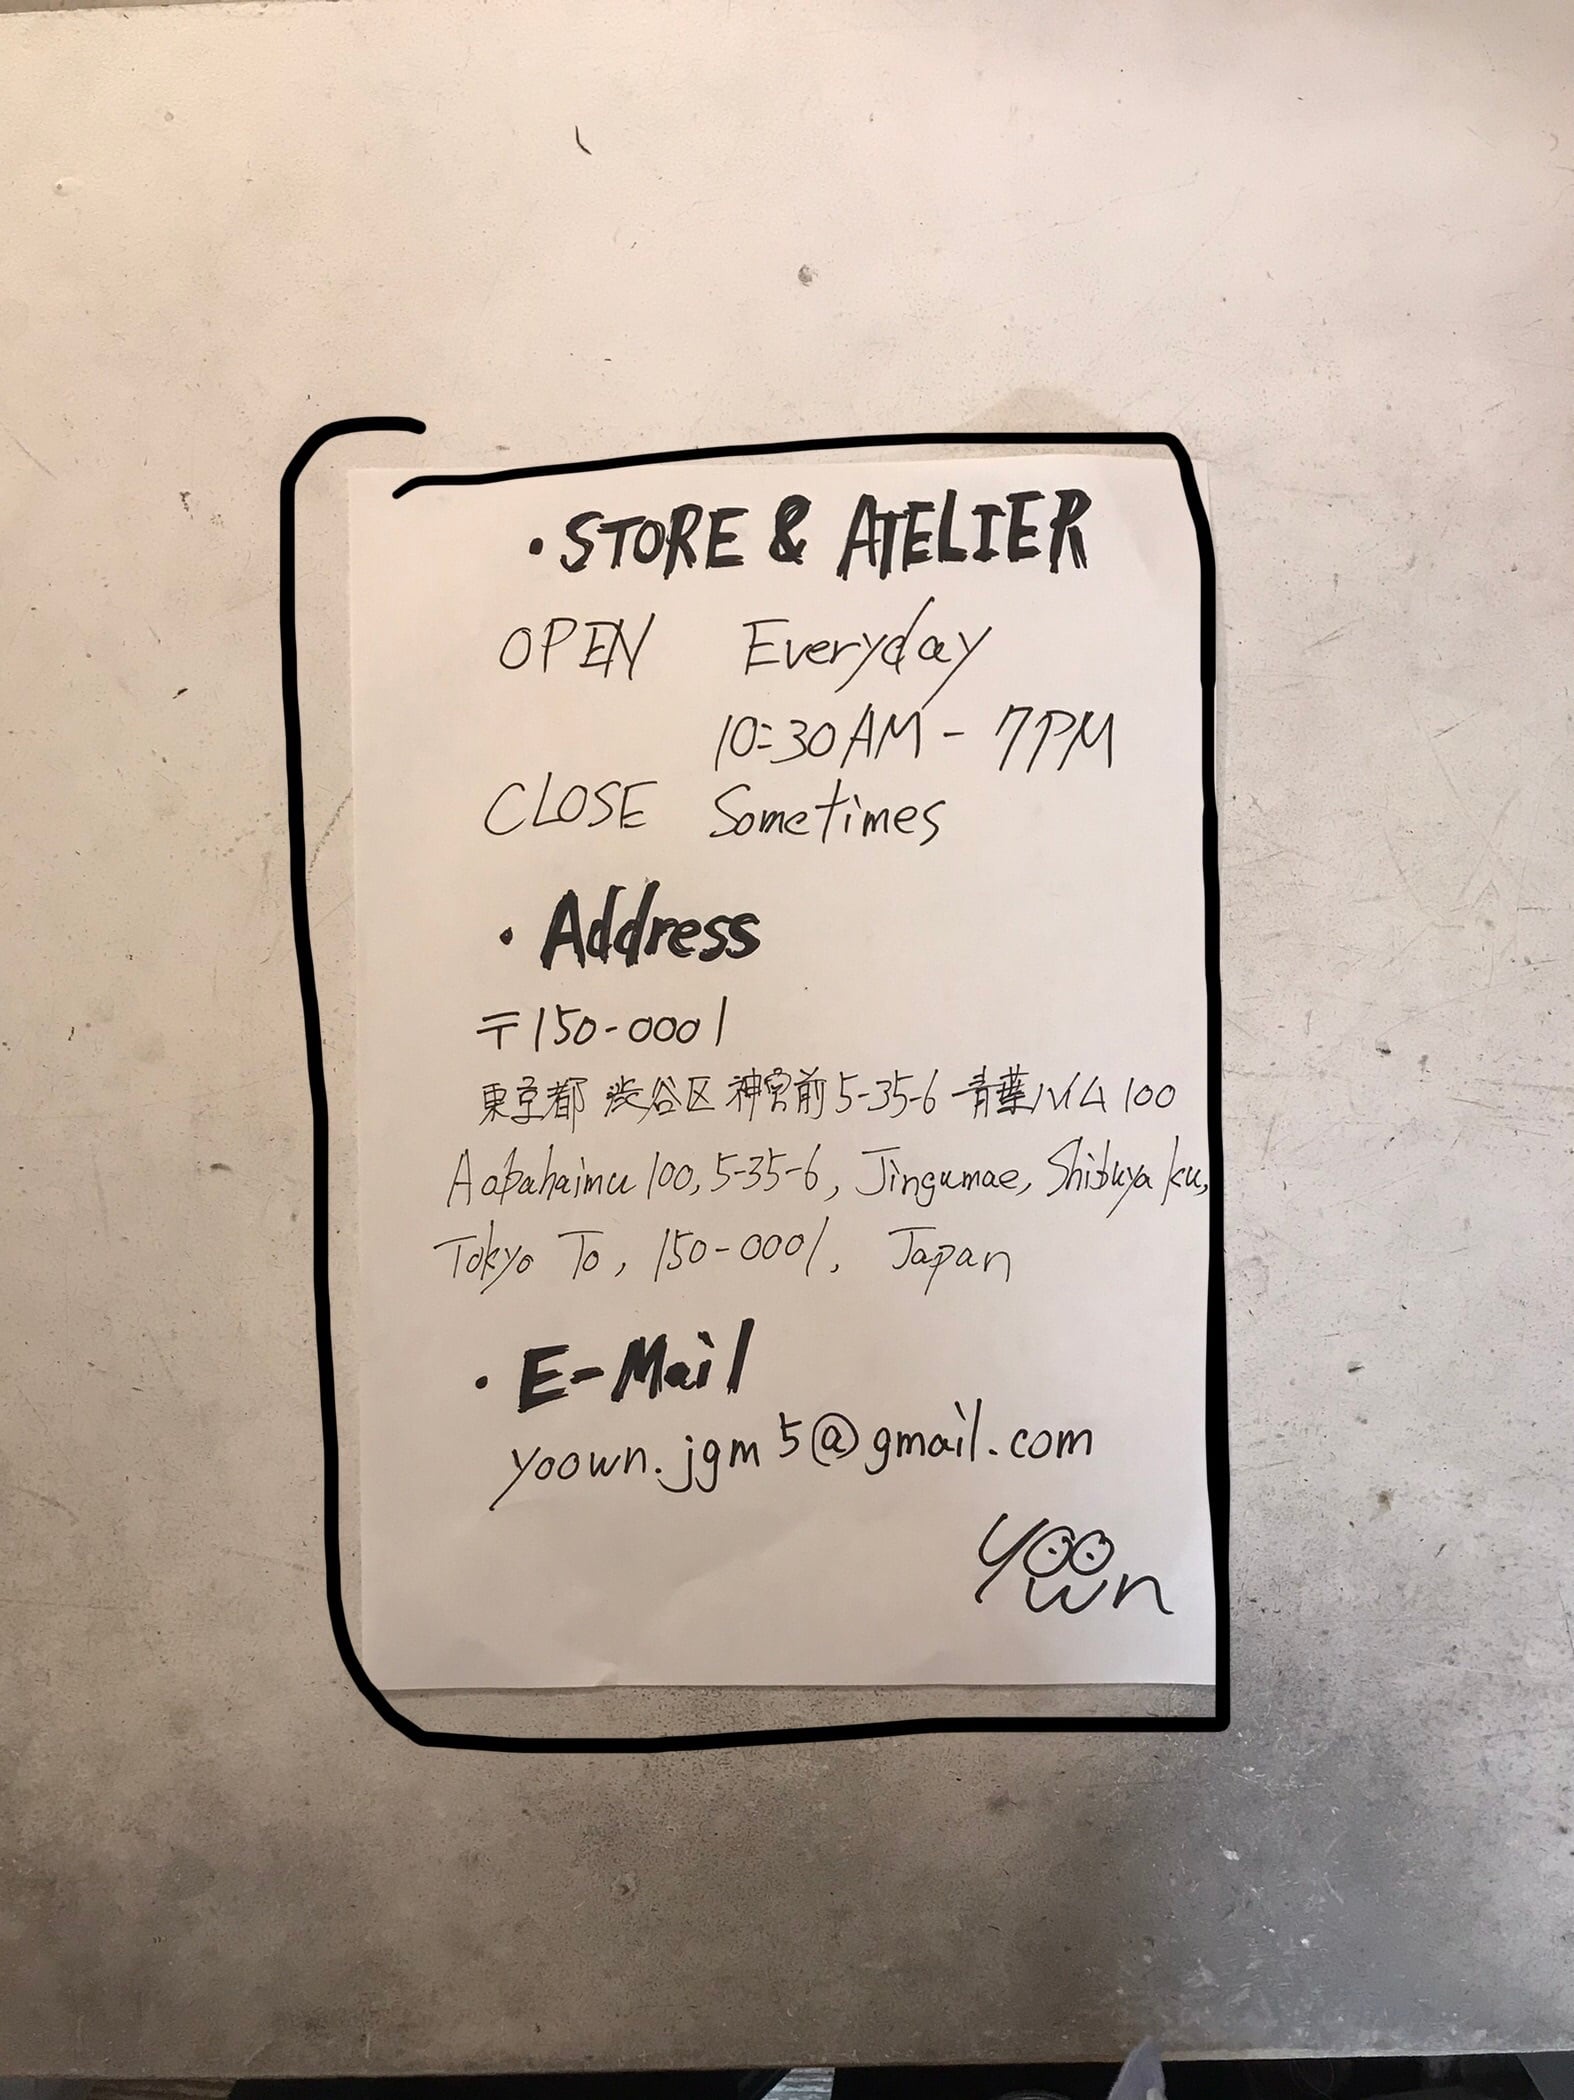 ・STORE & ATELIER
OPEN Everyday
10:30AM - 7PM
CLOSE Sometimes
・Address
〒150-0001
東京都 渋谷区 神宮前5-35-6 青葉ハイム100
Aobahaimu 100, 5-35-6, Jingumae, Shibuya ku,
Tokyo To, 150-0001, Japan
・E-Mail
yoown.jgm5@gmail.com
yoown